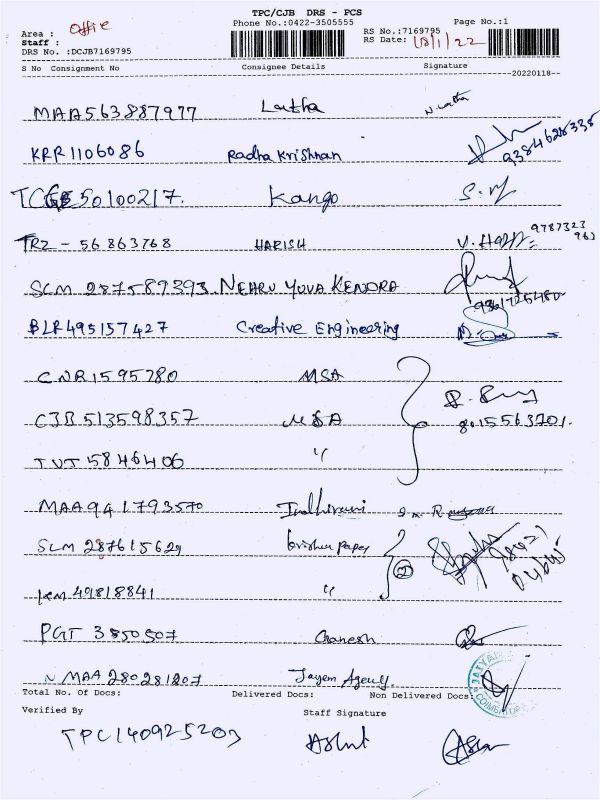 TPC/CJB DRS - PCS
Phone No.:0422-3505555 Page No.:1
Area : Office
Staff :
RS No.:7169795
DRS No. :DCJB7169795
RS Date: 18/1/22
S No Consignment No Consignee Details Signature
20220118
MAA563887977 Latha N. Latha
KRR1106086 Radha Krishnan 9384628338
50100217. Kango
TRZ - 56863768 HARISH V. 9787323
963
SCM 287587393. NEHRU YUVA KENDRA
9361725480
BLR495157427 Creative Engineering
CNR1595780 MSA
CJB513598357 MSA 8015563701.
TUT5846406 "
MAA941793570
SLM 287615629 paper
49818841 "
PGT 3850507 Ganesh
MAA 280281207 Jayem Agency
Total No. Of Docs: Delivered Docs: Non Delivered Docs:
Verified By Staff Signature
TPC140925203